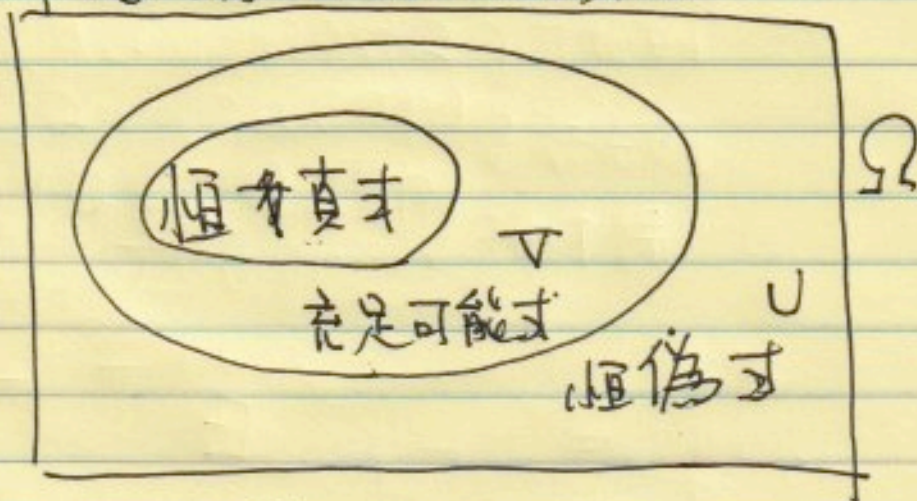 恒真式
Ω
▽
充足可能式
U
恒偽式